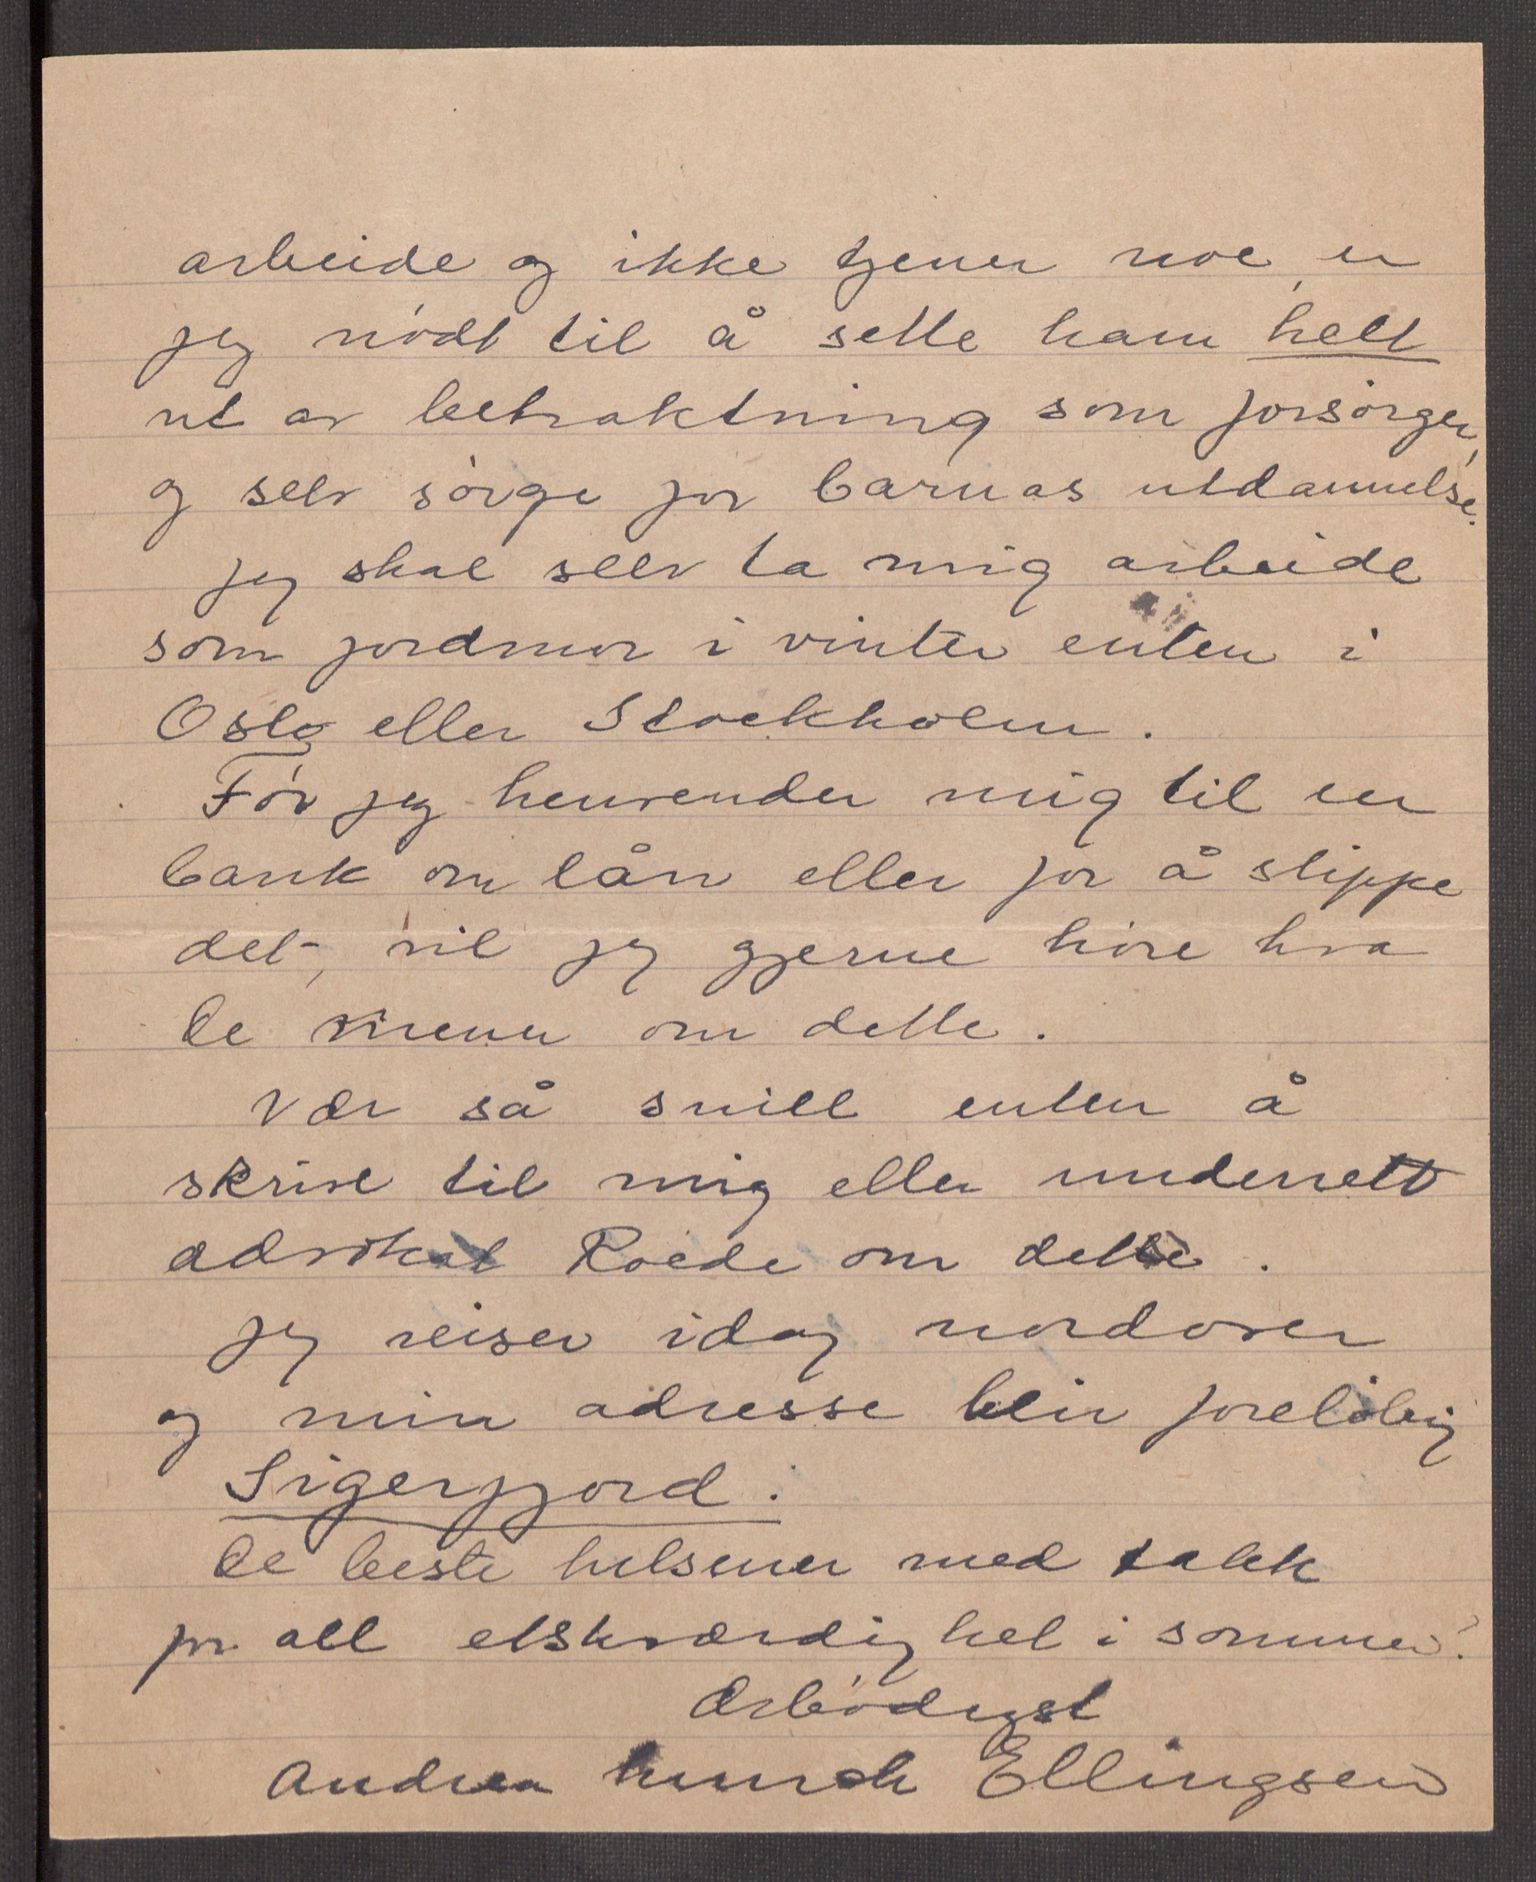 arbeide og ikke tjener noe, er
jeg nødt til å sette ham helt
ut av betraktning som forsørger,
og selv sørge for barnas utdannelse.
Jeg skal selv ta mig arbeide
som jordmor i vinter enten i
Oslo eller Stockholm.
Før jeg henvender mig til en
bank om lån eller for å slippe
det, vil jeg gjerne høre hva
De mener om dette.
Vær så snill enten å
skrive til mig eller underrett
advokat Roede om dette.
Jeg reiser idag nordover
og min adresse blir foreløbig
Sigerfjord.
De beste hilsener med takk
for all elskværdighet i sommer.
Ærbødigst
Andrea Munch Ellingsen